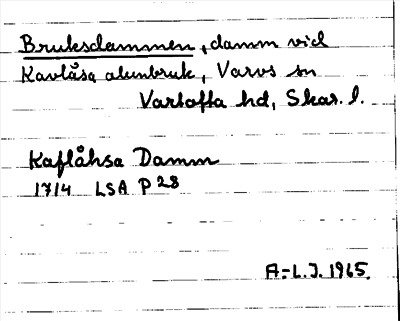 Bruksdammen, damm vid
Kavlåsa alunbruk, Varvs sn
Vartofta hd, Skar. l.
Kaflåhsa Damm
1714 LSA P 28
A.-L.J. 1965.